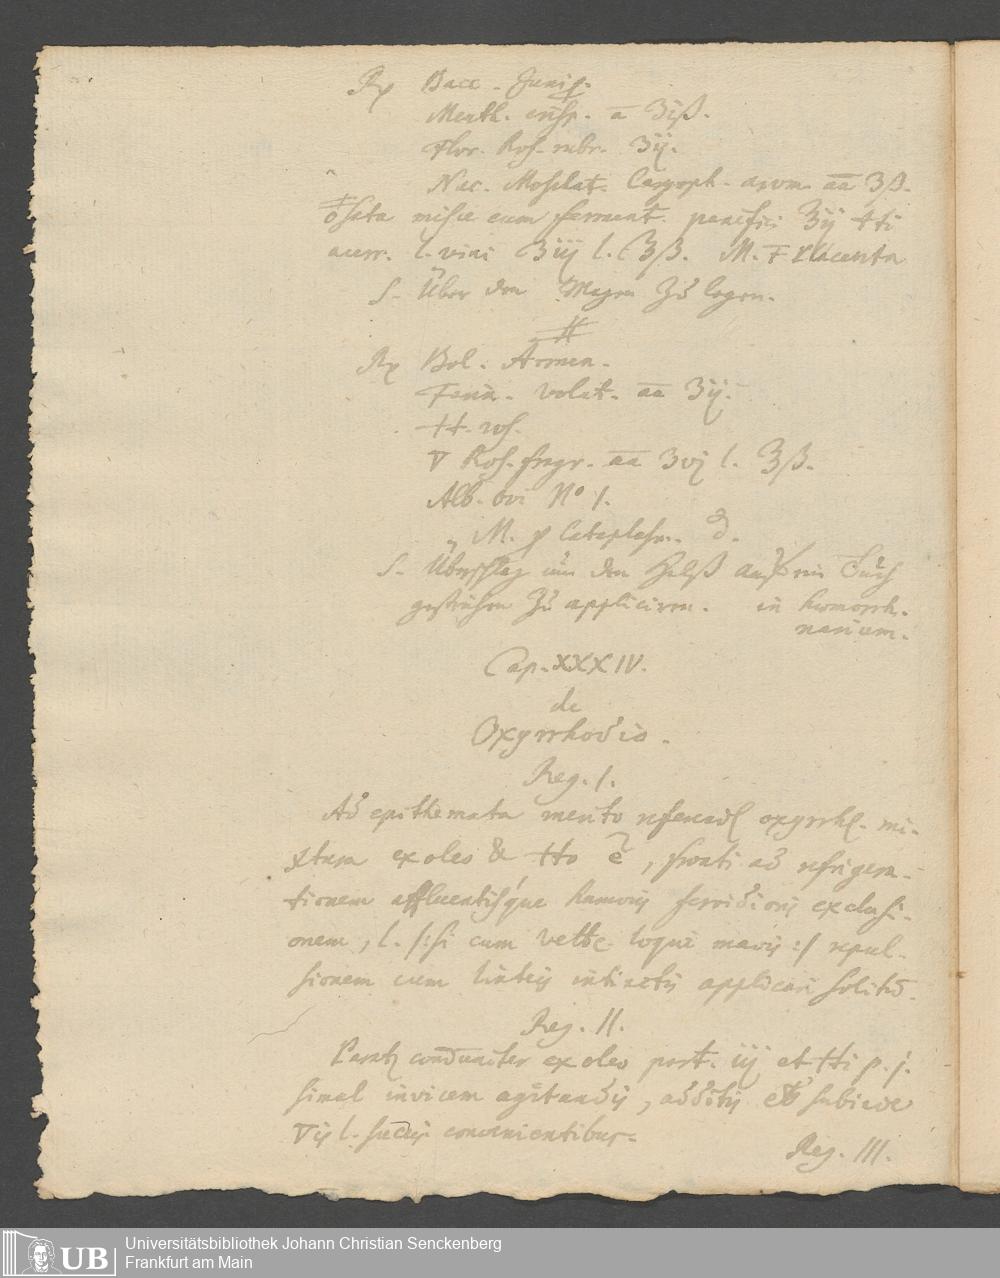 Rx Bacc. Junip.
Menth. crisp. a ʒiß.
Flor. Ros. rubr. ʒij.
Nuc. Moschat. Caryoph. arom. aa ʒß.
misce cum ferment. panific. ʒij
acerr. l. vini ʒiij l. ℥ß. M. F placenta
S. Über den Magen Zŭ legen.
#
Rx Bol. Armen.
Farin. volat. aa ʒij.
ros.
▽ Ros. fragr. aa ʒvj l. ℥ß.
Alb. ovi No 1.
M. Cataplasm. d.
S. Überschlag um den Halß auf ein Tuch
gestrichen Zŭ appliciren. in hæmorrh.
narium.
Cap. XXXIV.
de
Oxyrrhodio.
Reg. I.
Ad epithemata merito oxyrrh. mi-
xtum ex oleo & , fronti ad refrigera-
tionem affluentisque humoris fervidioris exclusi-
onem, l. /:si cum loqui mavis:/ repul-
sionem cum linteis intinctis applicari solitũ.
Reg. II.
Parat conduciter ex oleo part. iij et p. j.
simul invicem agitandis, additis subinde
▽is l. succis convenientibus.
Reg. III.
Universitätsbibliothek Johann Christian Senckenberg
Frankfurt am Main
UB